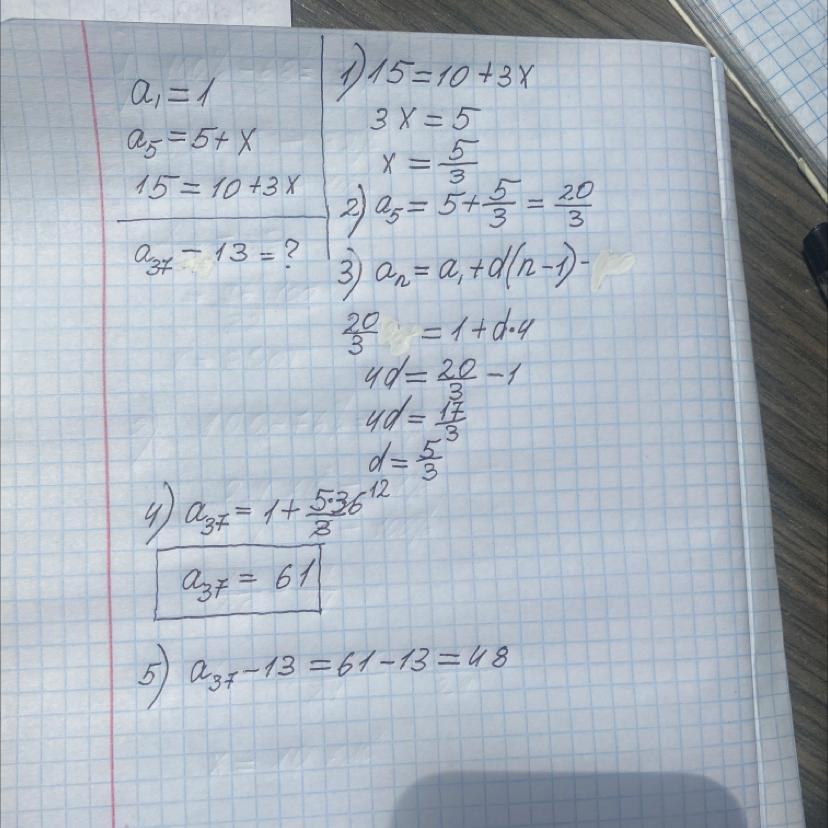 a₁ = 1
a₅ = 5 + x
15 = 10 + 3x
a₃₇ - 13 = ?
1) 15 = 10 + 3x
3x = 5
x = 5/3
2) a₅ = 5 + 5/3 = 20/3
3) aₙ = a₁ + d(n-1) -
20/3 = 1 + d·4
4d = 20/3 - 1
4d = 17/3
d = 5/3
4) a₃₇ = 1 + 5·36¹²/3
a₃₇ = 61
5) a₃₇ - 13 = 61 - 13 = 48